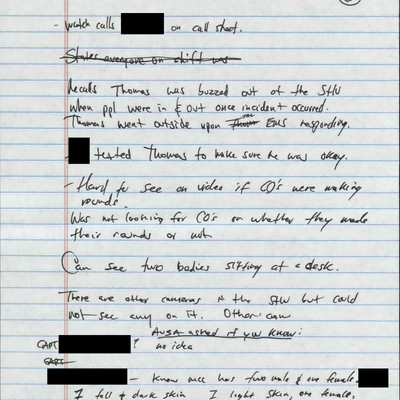 - Watch calls on call sheet.
States everyone on shift was
Recalls Thomas was buzzed out of the SHU
when ppl were in & out once incident occurred.
Thomas went outside upon the EMS responding.
texted Thomas to make sure he was okay.
- Hard to see on video if CO's were making
rounds.
Was not looking for CO's or whether they made
their rounds or not.
Can see two bodies sitting at a desk.
There are other cameras in the SHU but could
not see any on it. Other cam
AUSA asked if you know:
CAPT ? no idea
CAPT
- Know mcc has two male & one female
1 tall & dark skin 1 light skin, one female.